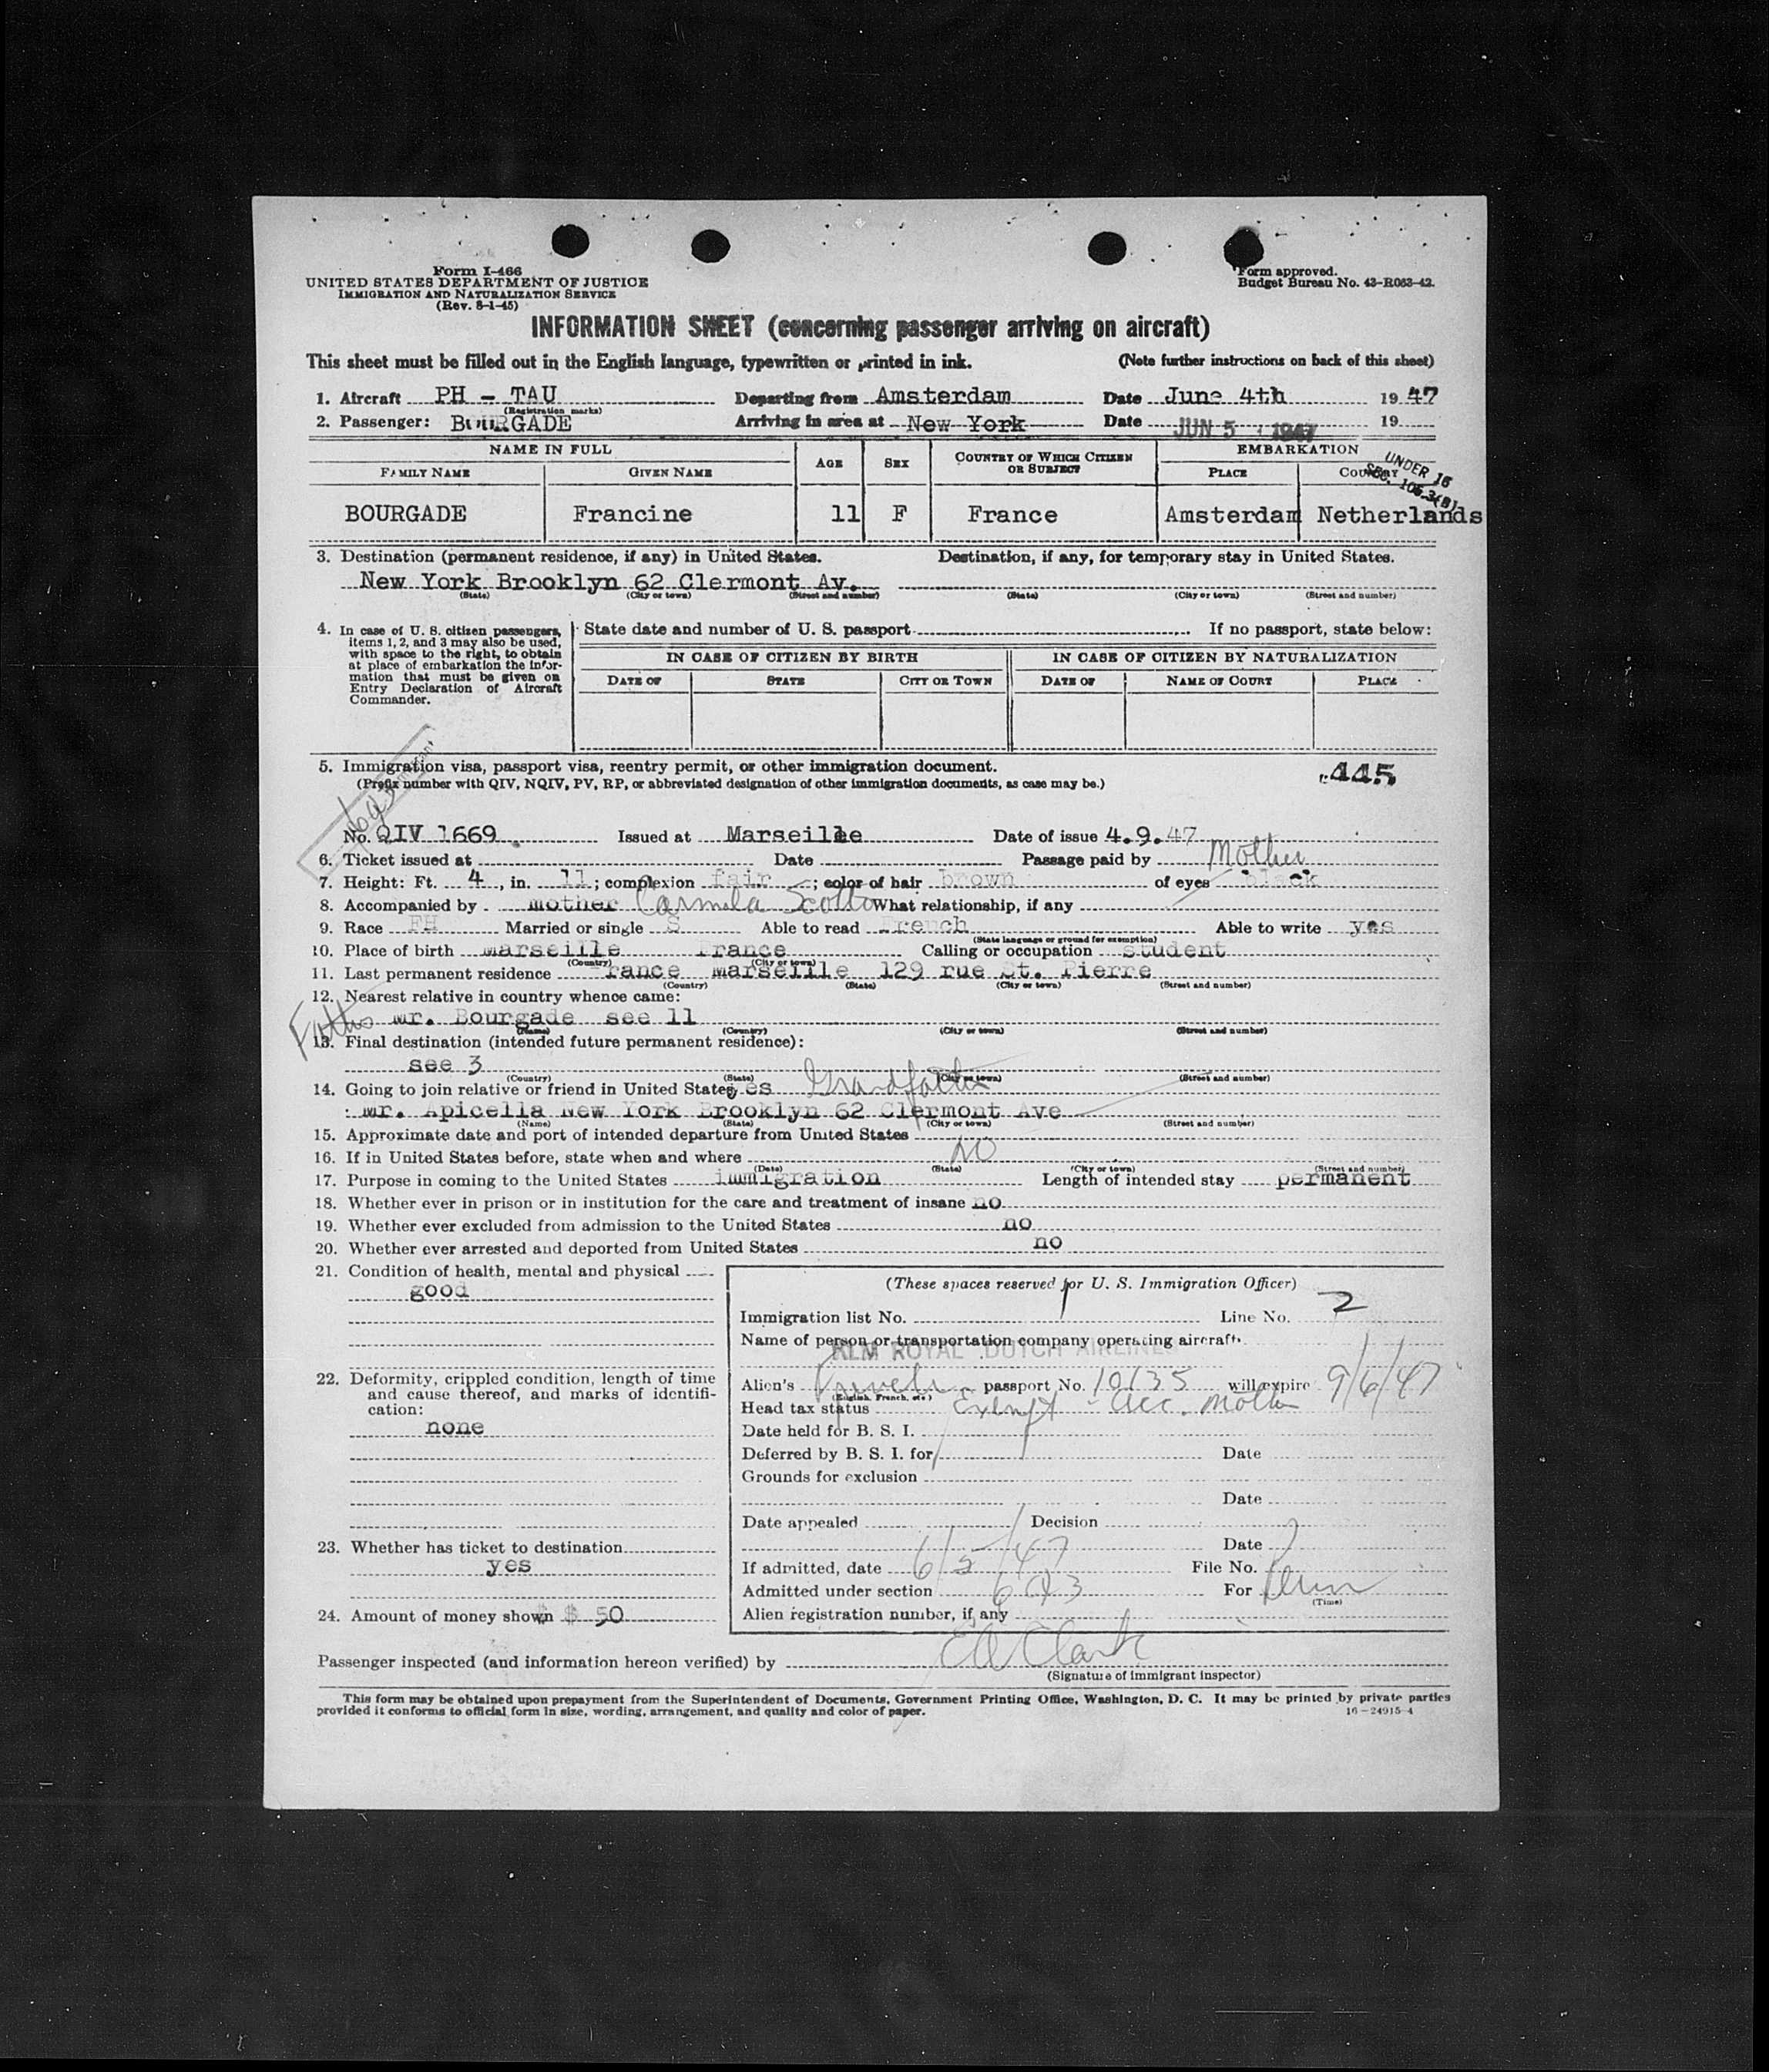 Form I-466
UNITED STATES DEPARTMENT OF JUSTICE
IMMIGRATION AND NATURALIZATION SERVICE
(Rev. 8-1-45)
Form approved.
Budget Bureau No. 43-R063-42.
INFORMATION SHEET (concerning passenger arriving on aircraft)
This sheet must be filled out in the English language, typewritten or printed in ink. (Note further instructions on back of this sheet)
1. Aircraft PH - TAU Departing from Amsterdam Date June 4th 1947
(Registration marks)
2. Passenger: BOURGADE Arriving in area at New York Date JUN 5 1947 19
NAME IN FULL AGE SEX COUNTRY OF WHICH CITIZEN OR SUBJECT EMBARKATION
FAMILY NAME GIVEN NAME PLACE COUNTRY
UNDER 16
SEC. 105.3(B)
BOURGADE Francine 11 F France Amsterdam Netherlands
3. Destination (permanent residence, if any) in United States. Destination, if any, for temporary stay in United States.
New York Brooklyn 62 Clermont Av.
(State) (City or town) (Street and number) (State) (City or town) (Street and number)
4. In case of U. S. citizen passengers,
items 1, 2, and 3 may also be used,
with space to the right, to obtain
at place of embarkation the infor-
mation that must be given on
Entry Declaration of Aircraft
Commander.
State date and number of U. S. passport If no passport, state below:
IN CASE OF CITIZEN BY BIRTH IN CASE OF CITIZEN BY NATURALIZATION
DATE OF STATE CITY OR TOWN DATE OF NAME OF COURT PLACE
5. Immigration visa, passport visa, reentry permit, or other immigration document. 445
(Prefix number with QIV, NQIV, PV, RP, or abbreviated designation of other immigration documents, as case may be.)
No. QIV 1669 Issued at Marseille Date of issue 4.9.47
6. Ticket issued at Date Passage paid by Mother
7. Height: Ft. 4, in. 11; complexion fair; color of hair brown of eyes black
8. Accompanied by mother Carmela Scotto What relationship, if any
9. Race FH Married or single S Able to read French Able to write yes
(State language or ground for exemption)
10. Place of birth marseille France Calling or occupation student
(Country) (City or town)
11. Last permanent residence France marseille 129 rue St. Pierre
(Country) (State) (City or town) (Street and number)
12. Nearest relative in country whence came:
Father mr. Bourgade see 11
(Name) (Country) (City or town) (Street and number)
13. Final destination (intended future permanent residence):
see 3
(Country) (State) (City or town) (Street and number)
14. Going to join relative or friend in United States yes Grandfather
mr. Apicella New York Brooklyn 62 Clermont Ave
(Name) (State) (City or town) (Street and number)
15. Approximate date and port of intended departure from United States
16. If in United States before, state when and where NO
(Date) (State) (City or town) (Street and number)
17. Purpose in coming to the United States immigration Length of intended stay permanent
18. Whether ever in prison or in institution for the care and treatment of insane no
19. Whether ever excluded from admission to the United States no
20. Whether ever arrested and deported from United States no
21. Condition of health, mental and physical
good
22. Deformity, crippled condition, length of time
and cause thereof, and marks of identifi-
cation:
none
23. Whether has ticket to destination
yes
24. Amount of money shown $ $ 50
(These spaces reserved for U. S. Immigration Officer)
Immigration list No. Line No. 2
Name of person or transportation company operating aircraft
KLM ROYAL DUTCH AIRLINES
Alien's French passport No. 10135 will expire 9/6/47
(English, French, etc.)
Head tax status Exempt - acc. Mother
Date held for B. S. I.
Deferred by B. S. I. for Date
Grounds for exclusion
Date
Date appealed Decision
Date
If admitted, date 6/5/47 File No.
Admitted under section 6 (A) 3 For Perm
(Time)
Alien registration number, if any
Passenger inspected (and information hereon verified) by EA Clark
(Signature of immigrant inspector)
This form may be obtained upon prepayment from the Superintendent of Documents, Government Printing Office, Washington, D. C. It may be printed by private parties
provided it conforms to official form in size, wording, arrangement, and quality and color of paper. 16-24915-4